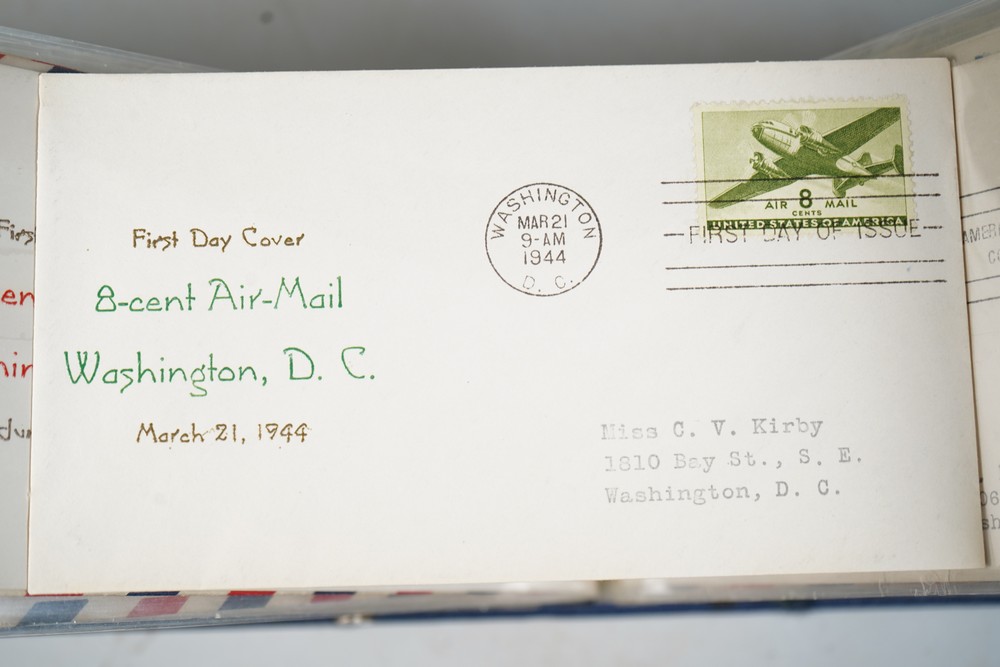 First Day Cover
8-cent Air-Mail
Washington, D. C.
March 21, 1944
WASHINGTON
MAR 21
9-AM
1944
D. C.
AIR 8 MAIL
CENTS
UNITED STATES OF AMERICA
FIRST DAY OF ISSUE
Miss C. V. Kirby
1810 Bay St., S. E.
Washington, D. C.